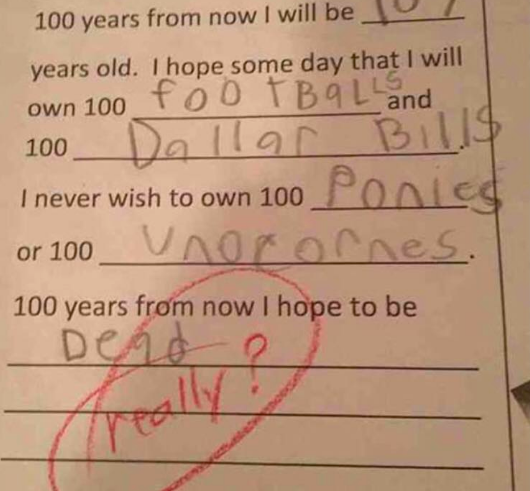 100 years from now I will be 107
years old. I hope some day that I will
own 100 fooTBaLLS and
100 Dallar Bills.
I never wish to own 100 Ponies
or 100 Unocornes.
100 years from now I hope to be
Dead
really?